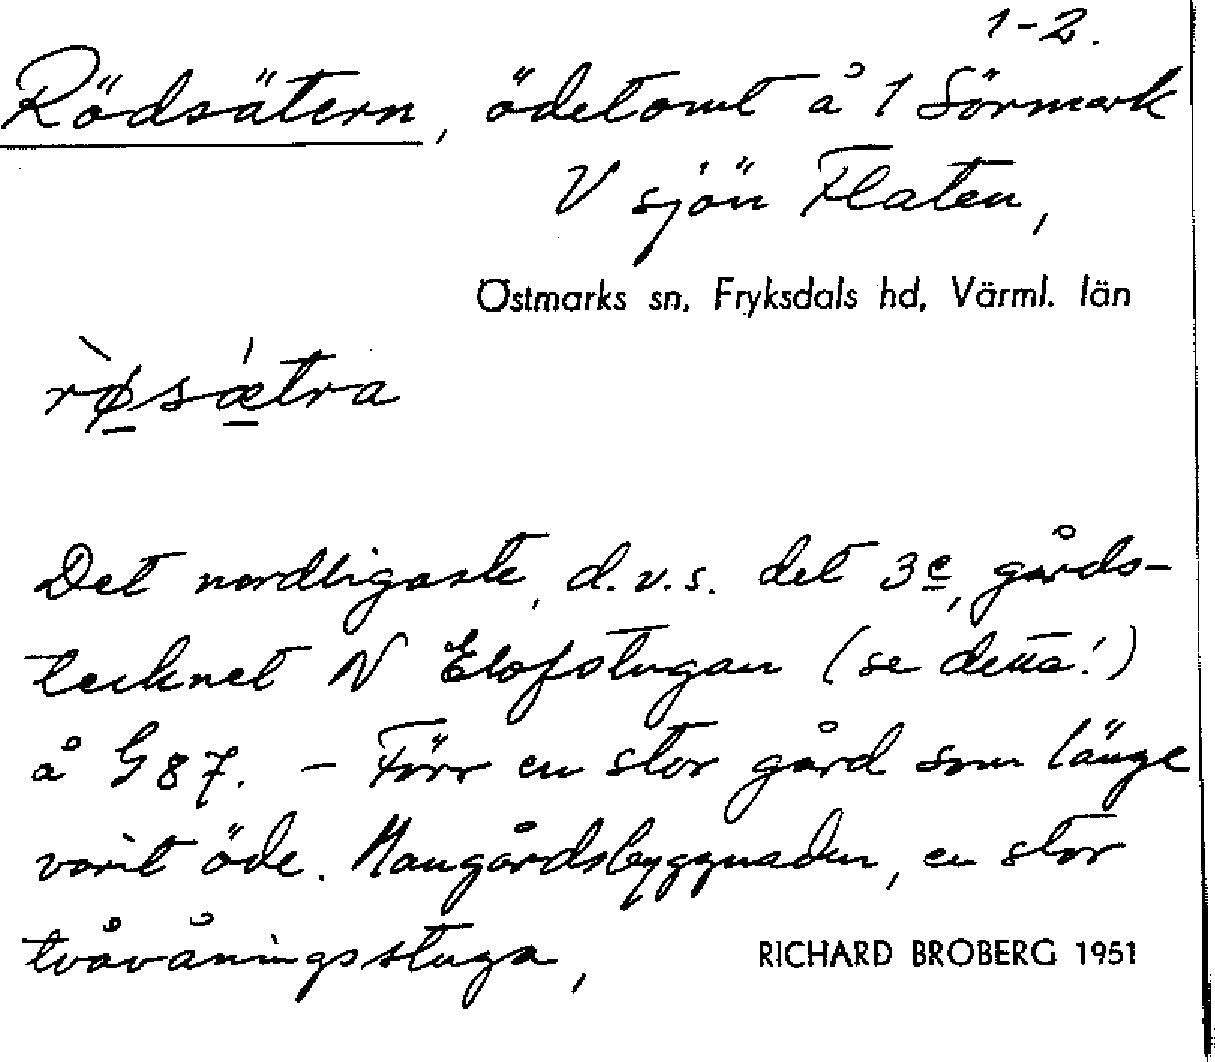 1-2.
Rödsätern, ödetomt å 1 Sörmark
V sjön Flaten,
Östmarks sn, Fryksdals hd, Värml. län
rø̀sǽtra
Det nordligaste, d.v.s. det 3e, gårds-
tecknet N Elofstugan (se detta!)
å G87. - Förr en stor gård som länge
varit öde. Mangårdsbyggnaden, en stor
tvåvåningsstuga,
RICHARD BROBERG 1951